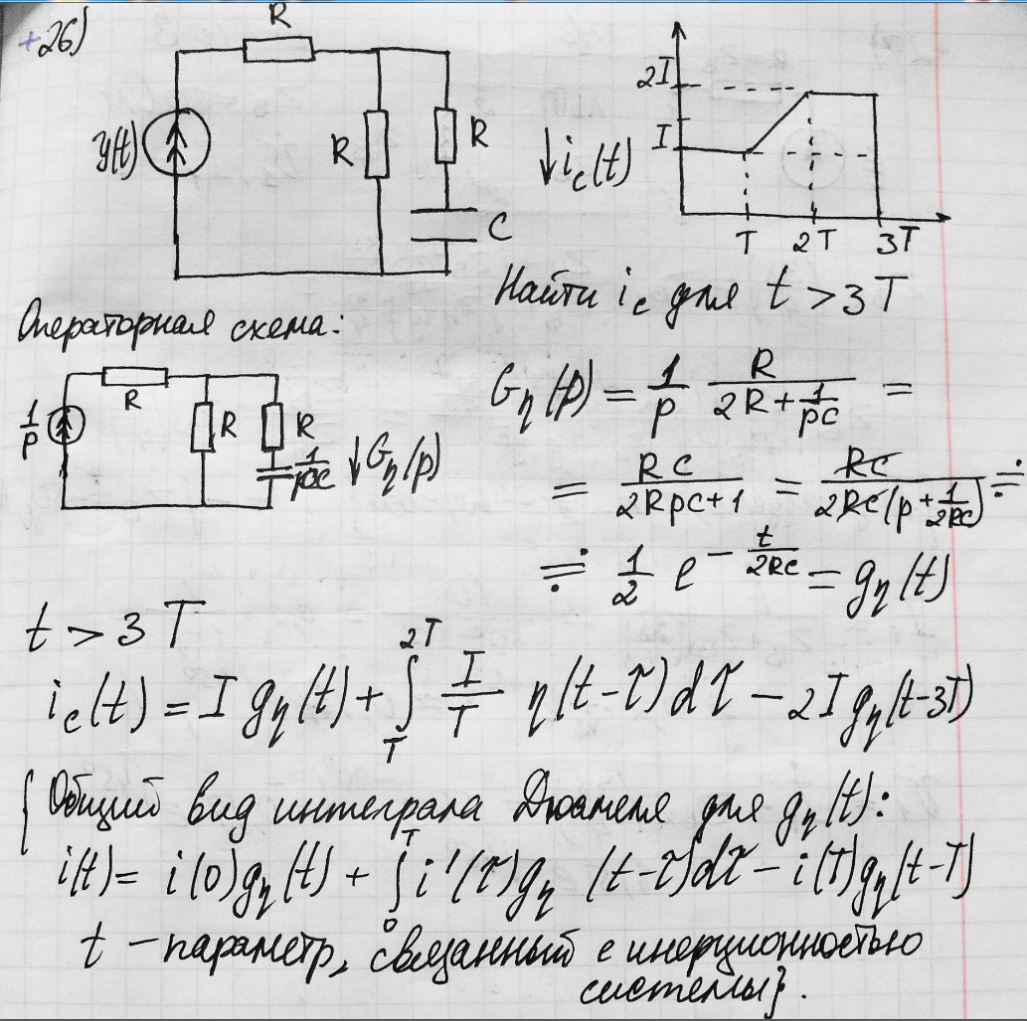 +26)
R
y(t)
R
R
C
↓ i_c(t)
2I
I
T 2T 3T
Найти i_c для t > 3T
Операторная схема:
1/p
R
R
R
1/pC
↓ G_η(p)
G_η(p) = 1/p R/(2R + 1/pC) =
= RC/(2RpC + 1) = RC/(2RC(p + 1/2RC)) ≓
≓ 1/2 e^(- t/2RC) = g_η(t)
t > 3T
i_c(t) = I g_η(t) + ∫_T^2T I/T η(t-τ)dτ - 2I g_η(t-3T)
{ Общий вид интеграла Дюамеля для g_η(t):
i(t) = i(0)g_η(t) + ∫_0^T i'(τ)g_η (t-τ)dτ - i(T)g_η(t-T)
t - параметр, связанный с инерционностью
системы}.